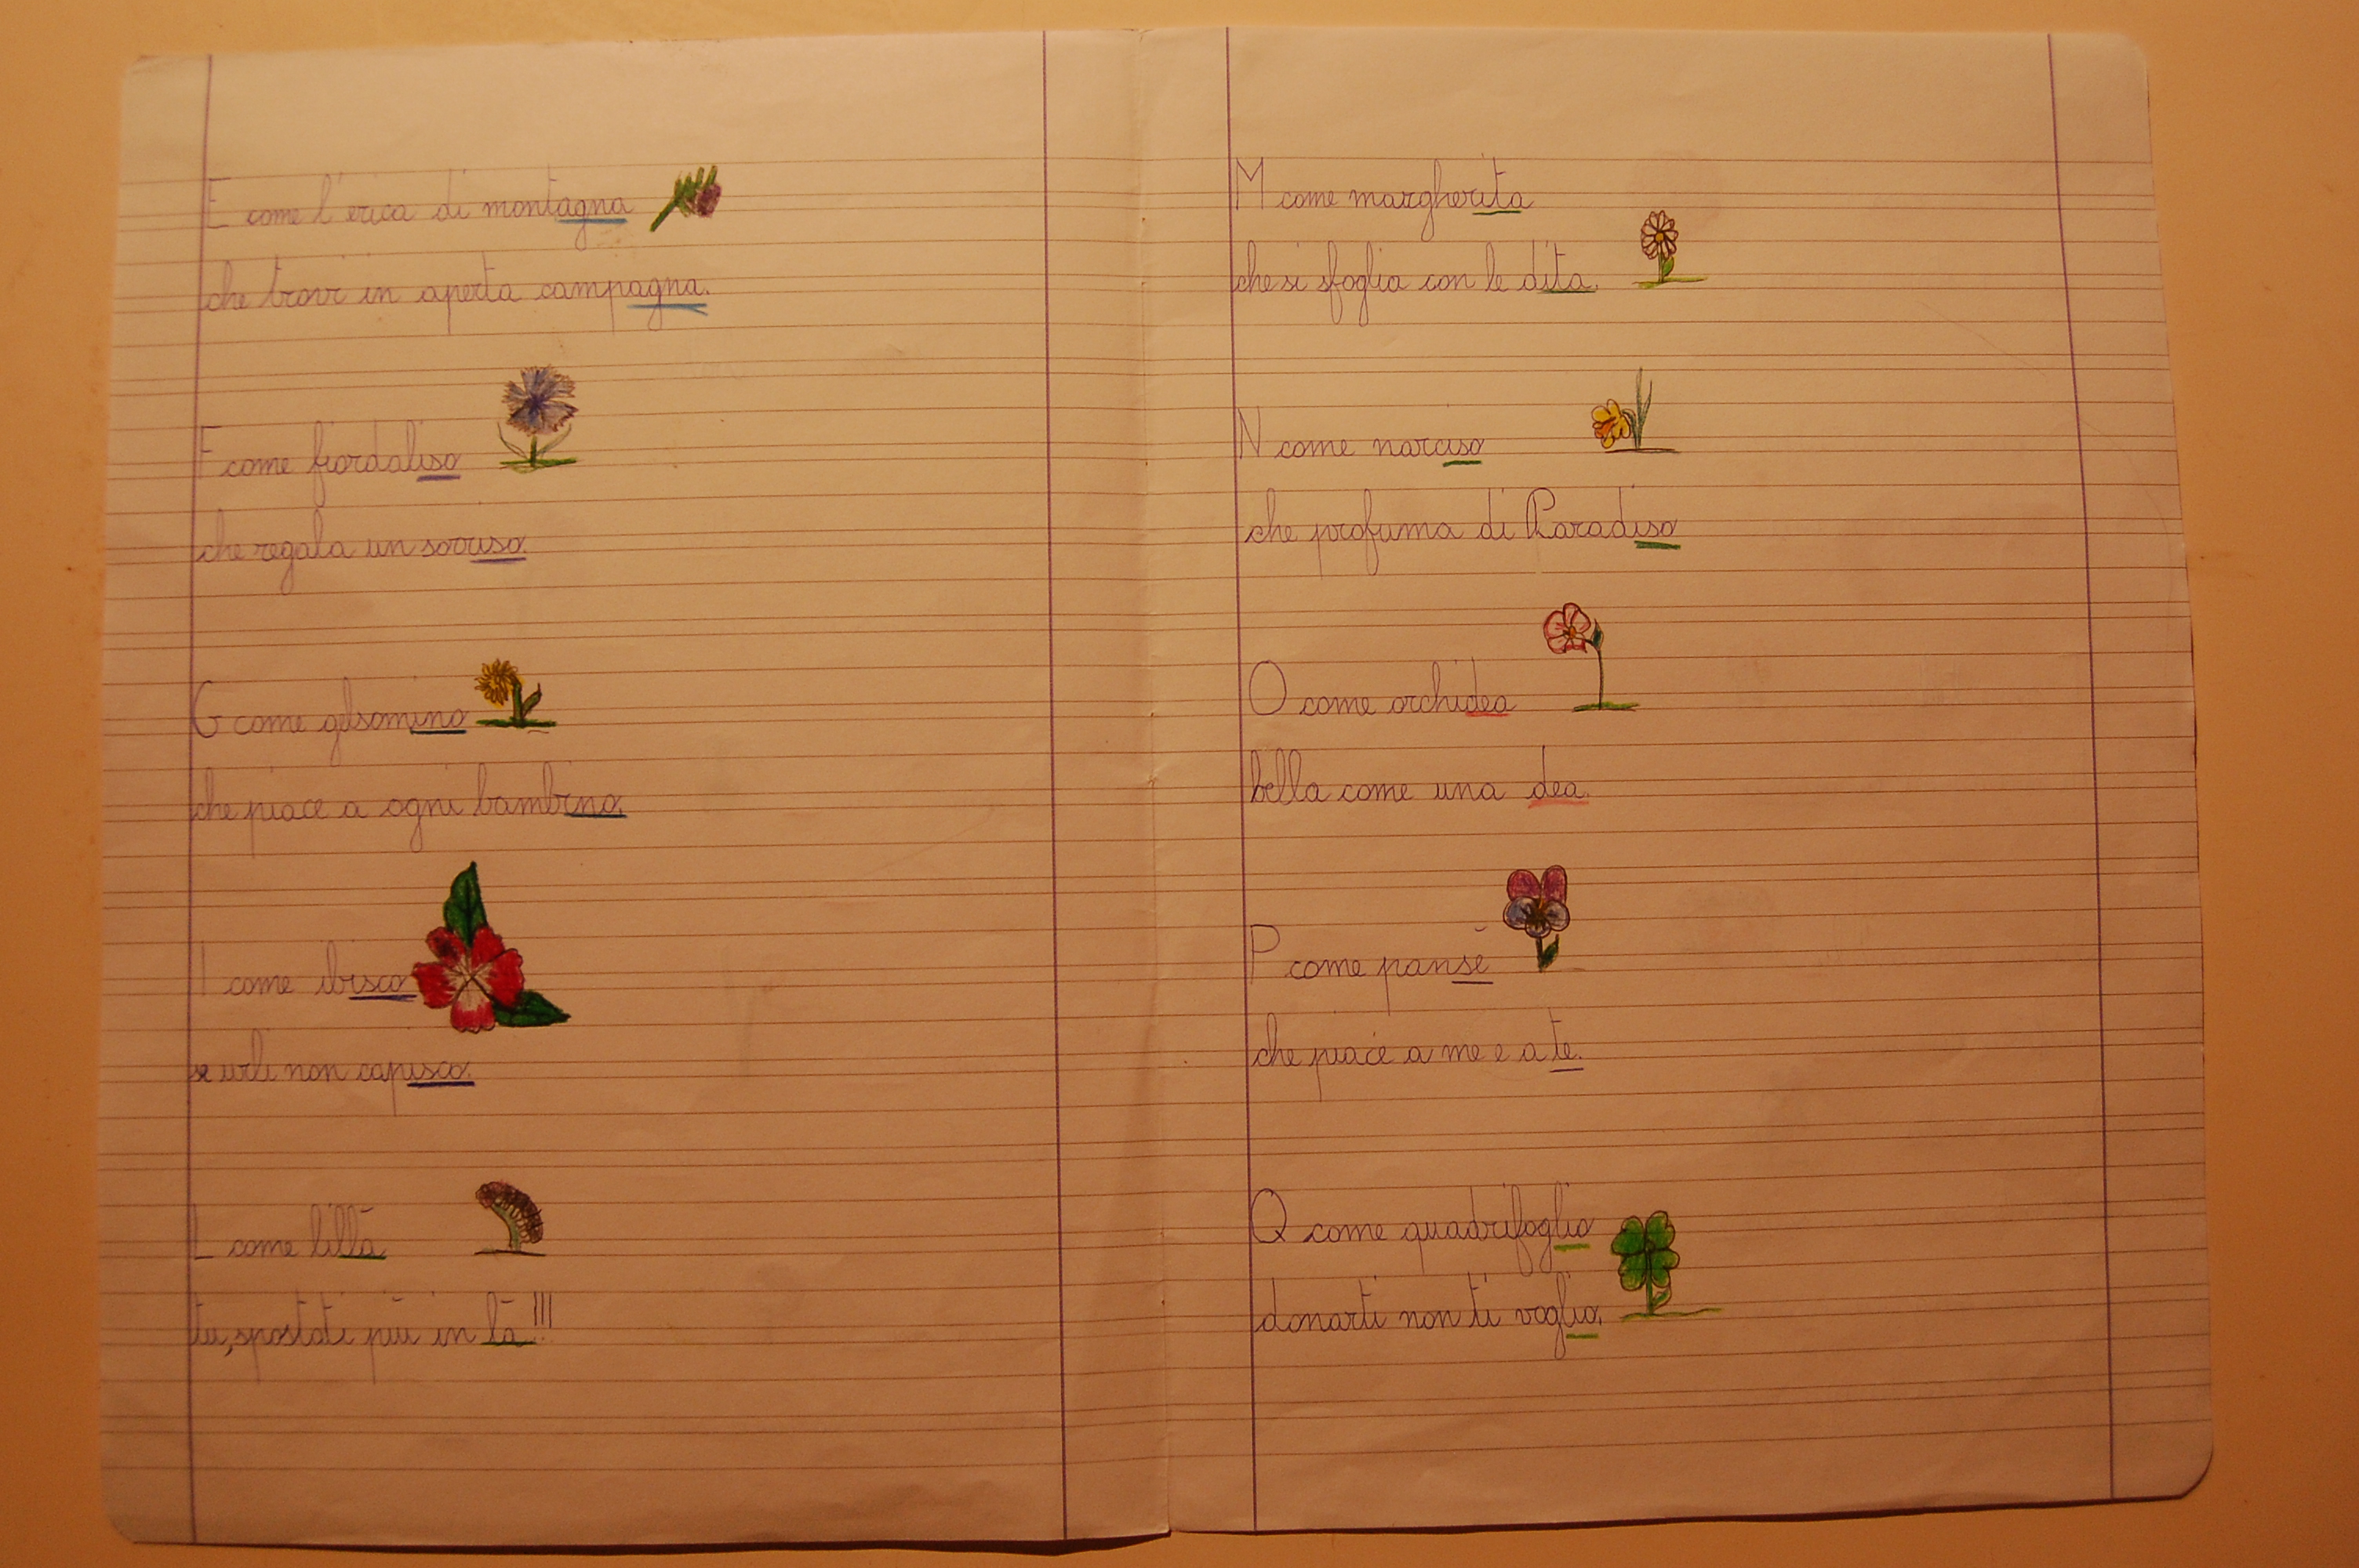 E come l'erica di montagna
che trovi in aperta campagna.
F come fiordaliso
che regala un sorriso.
G come gelsomino
che piace a ogni bambino.
I come ibisco
se urli non capisco.
L come lillà
tu, spostati più in là!!!
M come margherita
che si sfoglia con le dita.
N come narciso
che profuma di Paradiso
O come orchidea
bella come una dea.
P come pansé
che piace a me e a te.
Q come quadrifoglio
donarti non ti voglio.